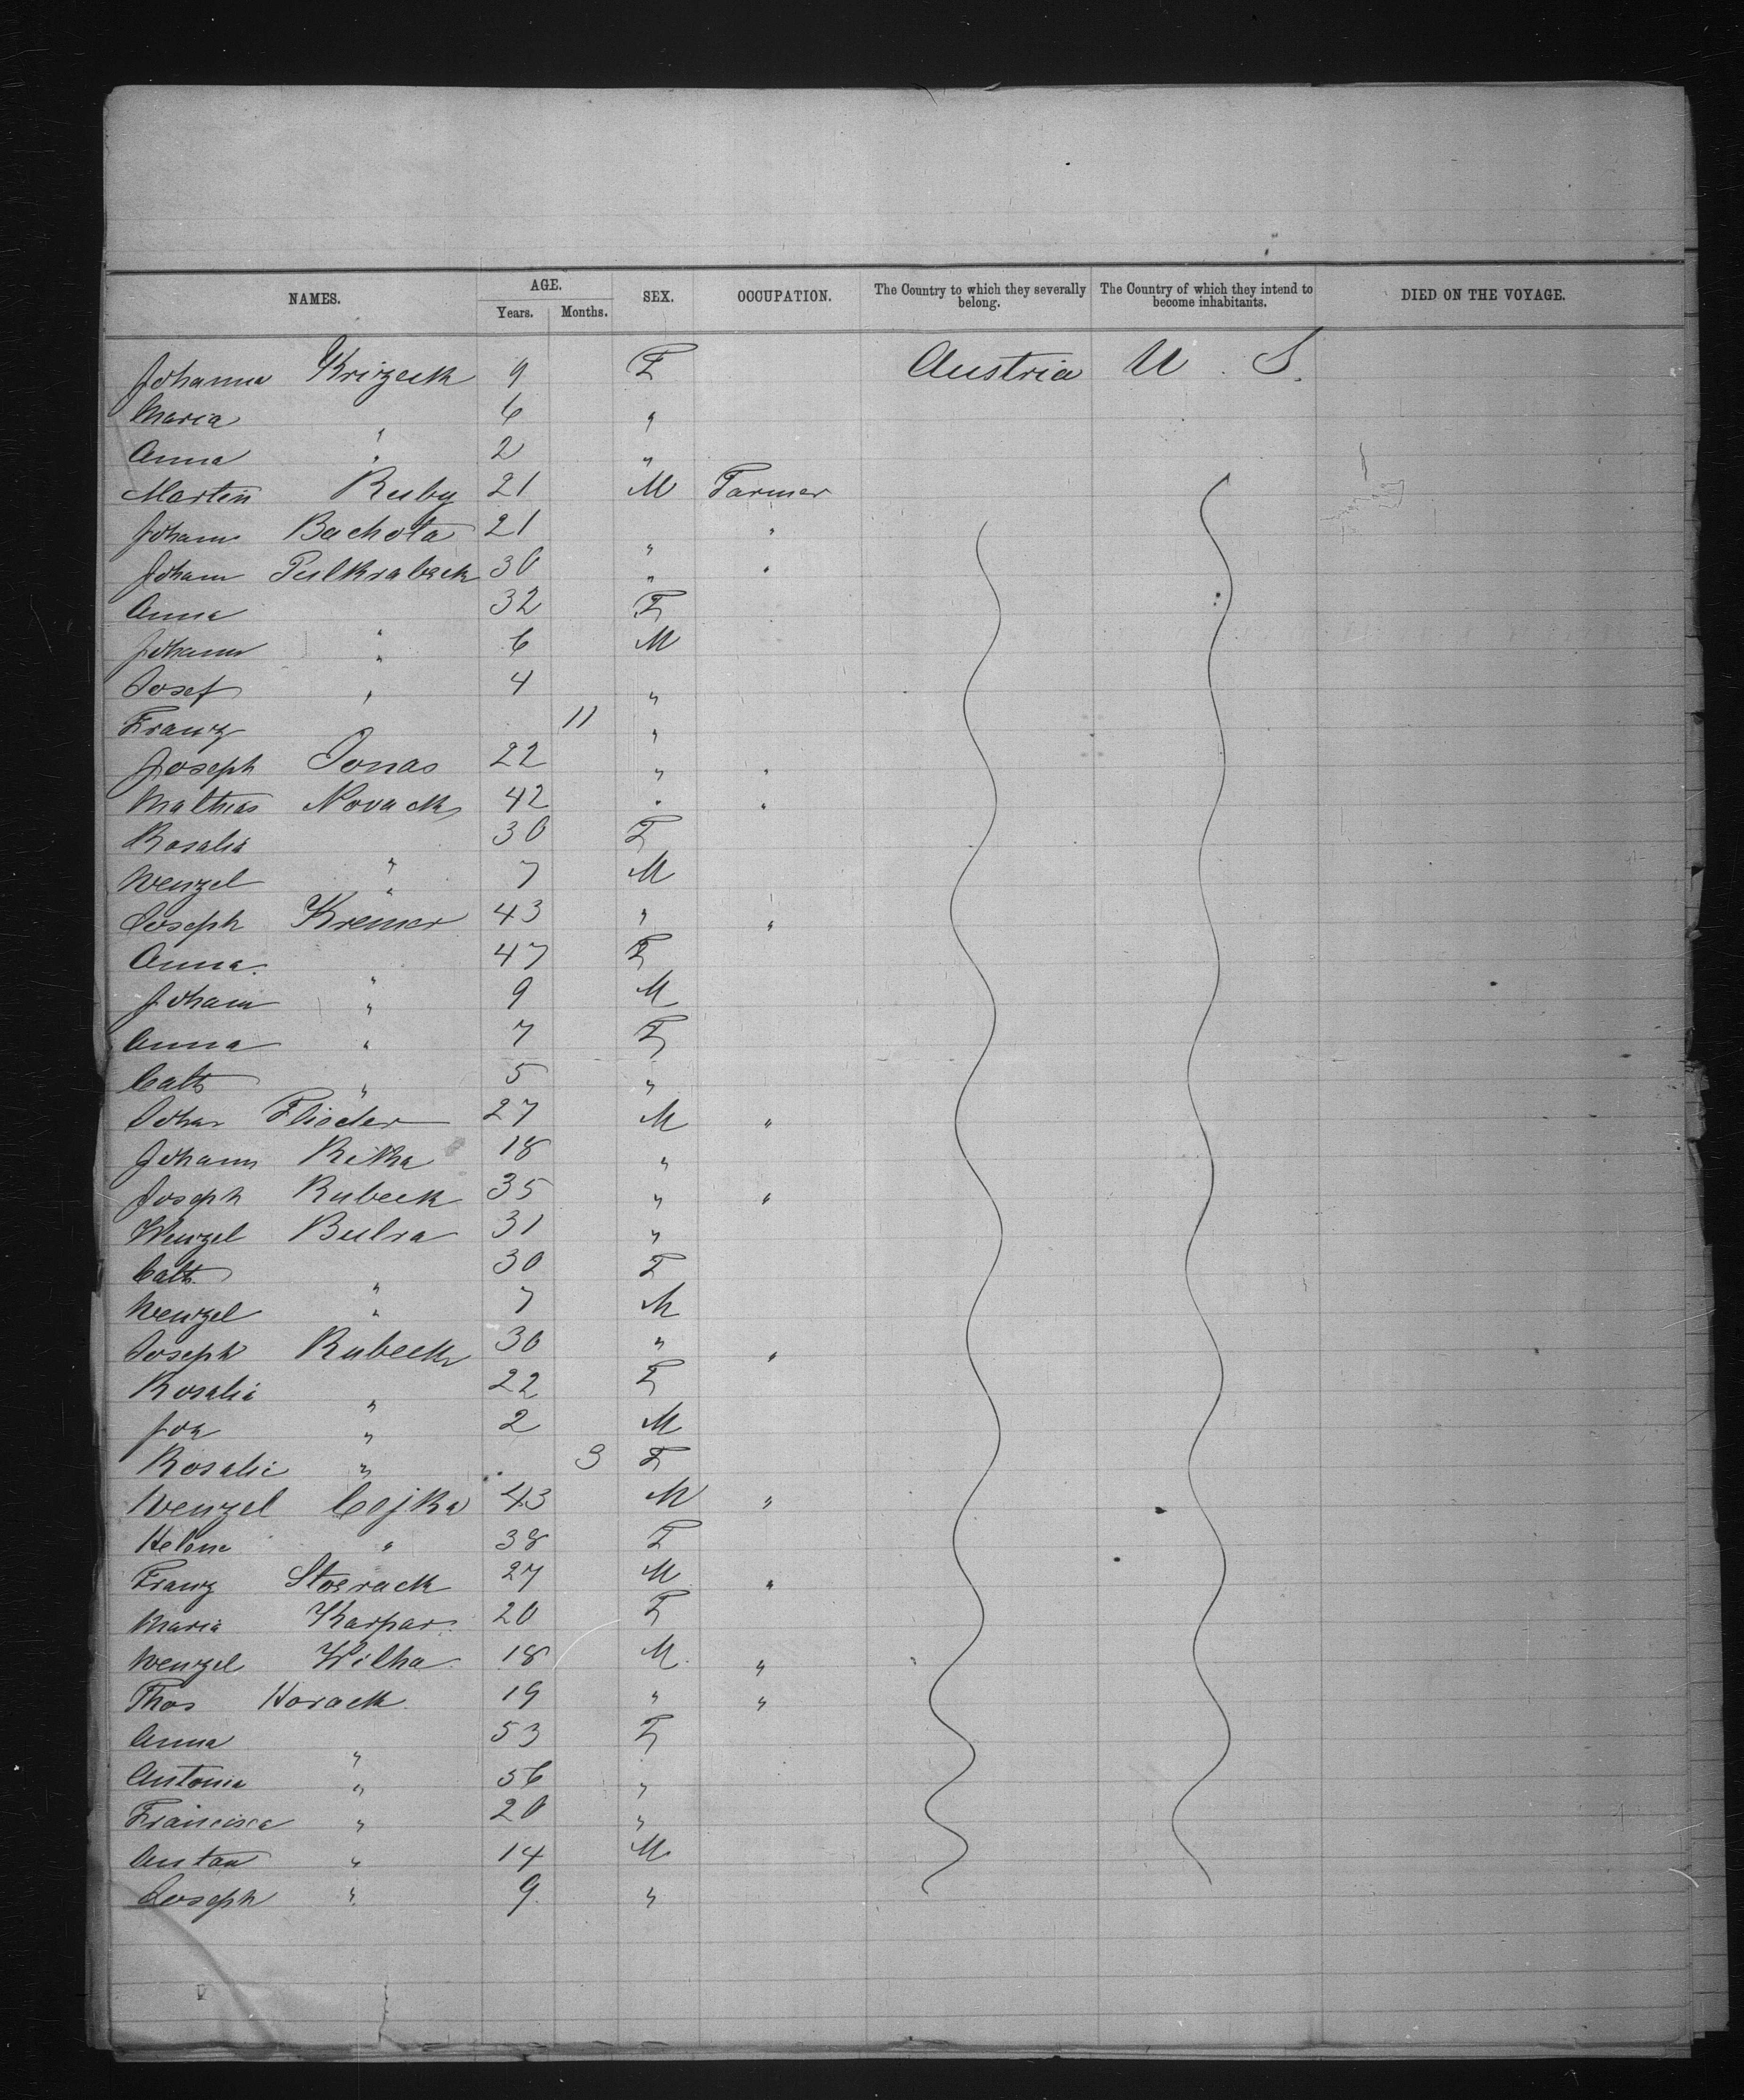 NAMES. AGE. Years. Months. SEX. OCCUPATION. The Country to which they severally belong. The Country of which they intend to become inhabitants. DIED ON THE VOYAGE.
Johanna Krizeck 9 F Austria U. S.
Maria " 6 "
Anna " 2 "
Martin Ruby 21 M Farmer
Johann Bachota 21 " "
Johann Pulkrabeck 30 " "
Anna " 32 F
Johann " 6 M
Josef " 4 "
Franz 11 "
Joseph Jonas 22 " "
Mathias Novack 42 " "
Rosalia " 30 F
Wenzel " 7 M
Joseph Kremer 43 " "
Anna " 47 F
Johann " 9 M
Anna " 7 F
Cath " 5 "
Johan Flieder 27 M "
Johann Retka 18 "
Joseph Rubeck 35 " "
Wenzel Bulva 31 "
Cath " 30 F
Wenzel " 7 M
Joseph Rubeck 30 " "
Rosalie " 22 F
Jos " 2 M
Rosalie " 3 F
Wenzel Cejka 43 M "
Helene " 38 F
Franz 27 M "
Maria Karpar 20 F
Wenzel Wilha 18 M "
Thos Horack 19 " "
Anna " 53 F
Antonia " 56 "
Francisca " 20 "
Antan " 14 M
Joseph " 9 "